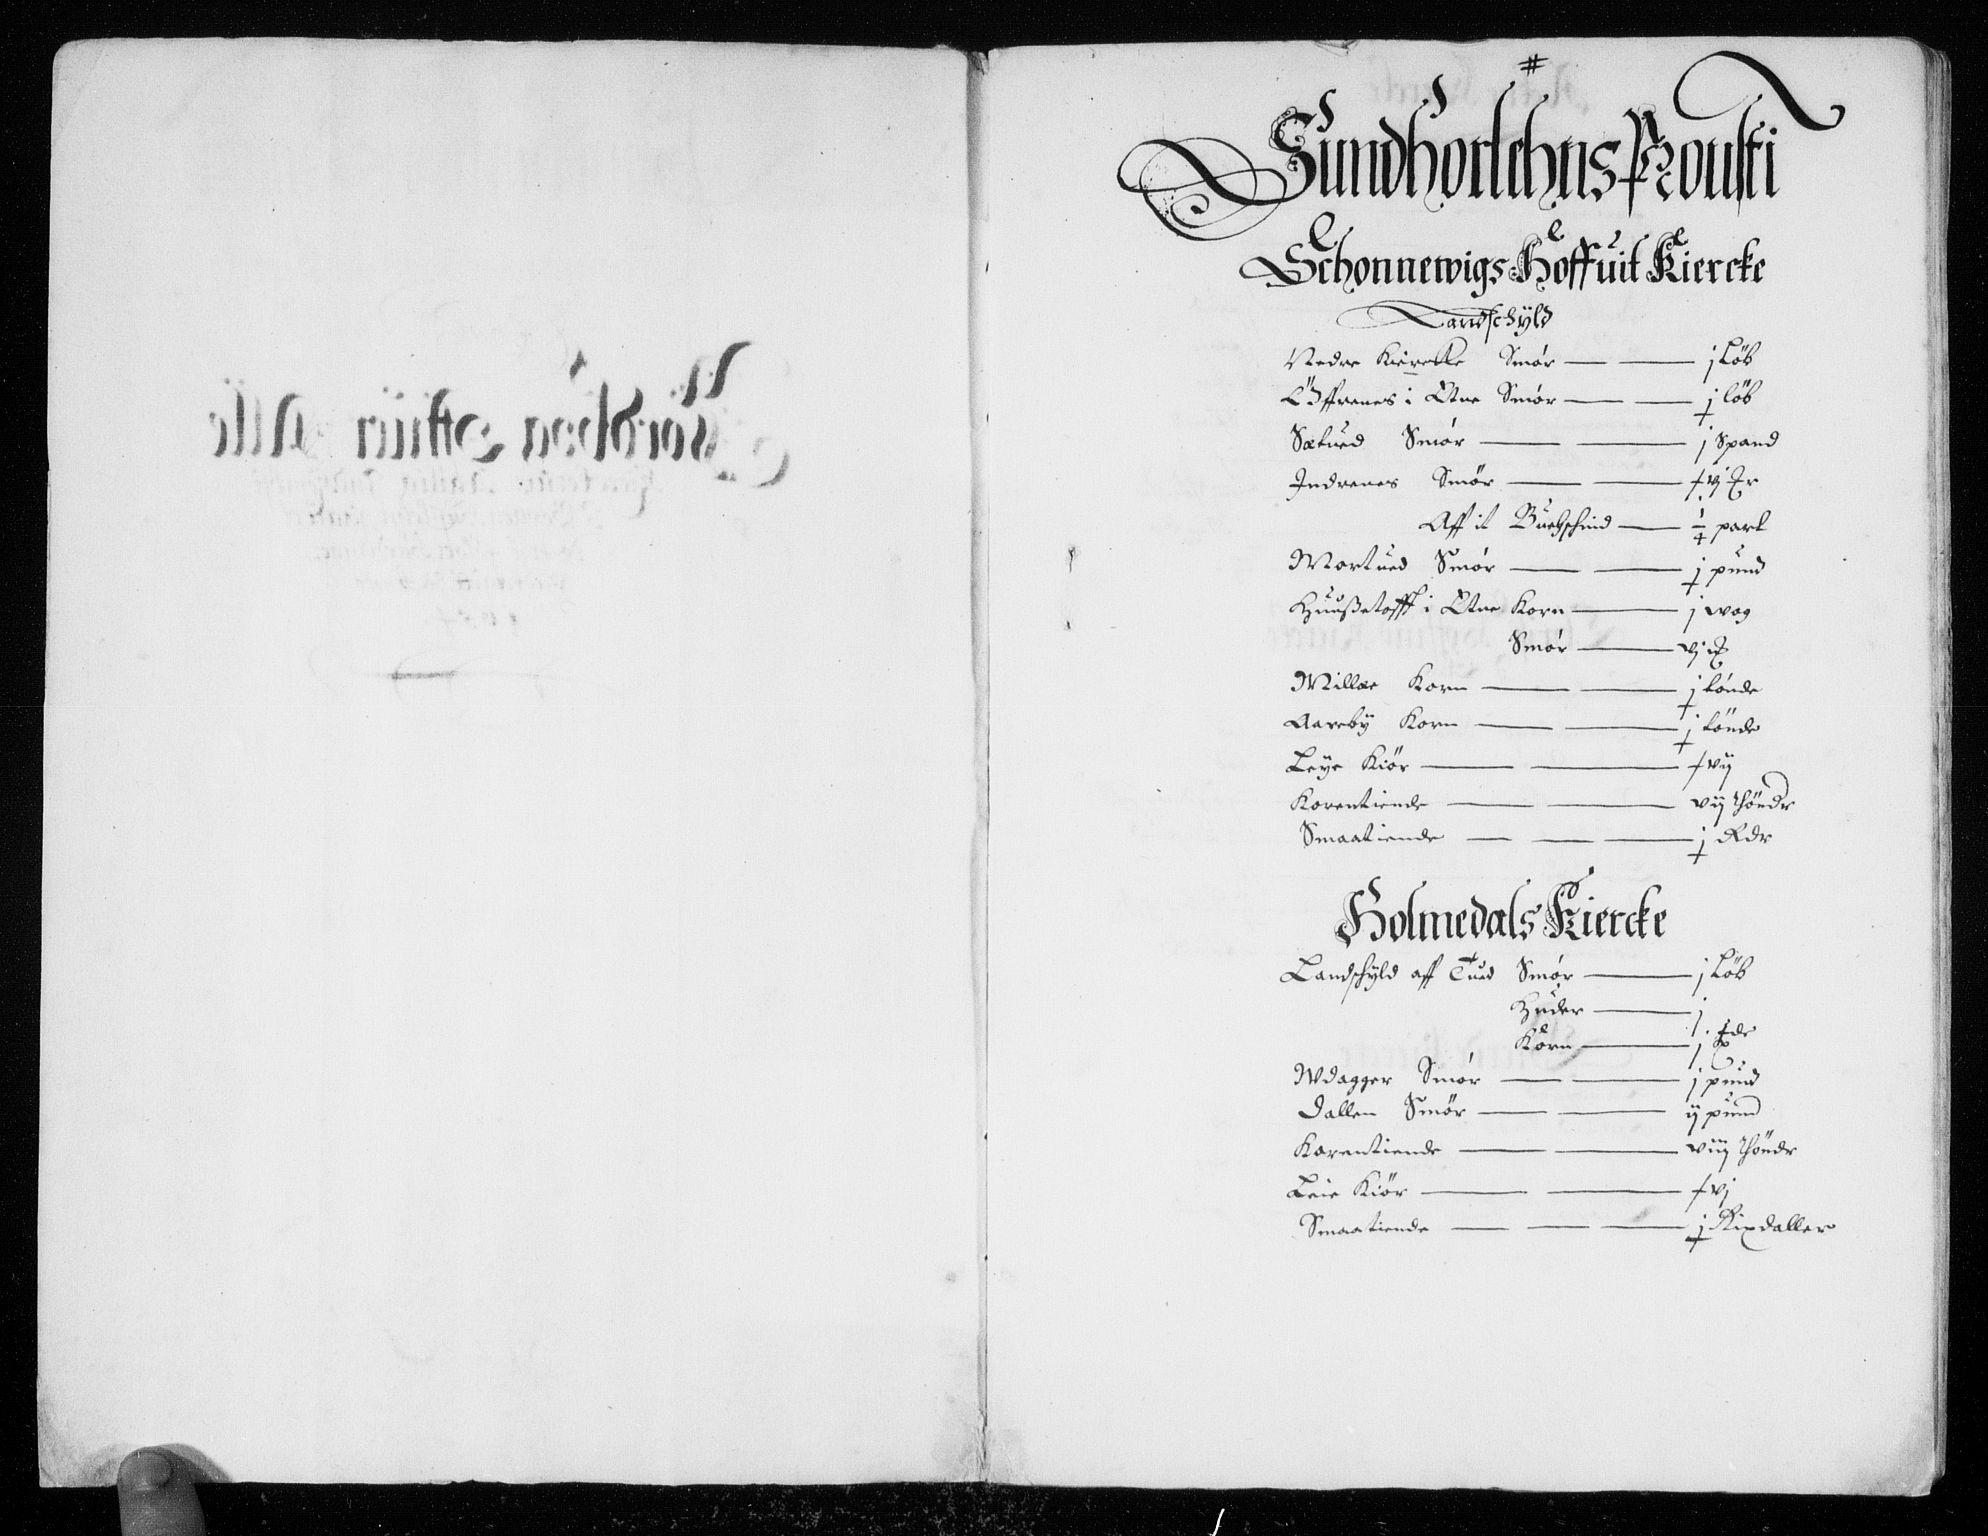 Sundhorlehns Prousti
Schonnewigs Hoffuit Kiercke
Landschyld
Nedre Kiercke Smør — — j Løb
Öffrenes i Etne Smør — — j løb
Sætued Smør — — j Spand
Indrenes Smør — — vj
Aff it Buckschind — part
Mortued Smør — — j pund
Huußetofft i Etne Korn — j wog
Smør — vj
Millæ Korn — — j tønde
Aareby Korn — — j tønde
Leye Kiør — — vij
Korentiende — — vij thøndr
Smaatiende — — — j Rdr
Holmedals Kiercke
Landschyld aff Tued Smør — j Løb
Huder — j
Korn — j
Wdagger Smør — — j pund
Dallen Smør — — ij pund
Korentiende — — viij thøndr
Leie Kiør — — vj
Smaatiende — — — j Rixdaller